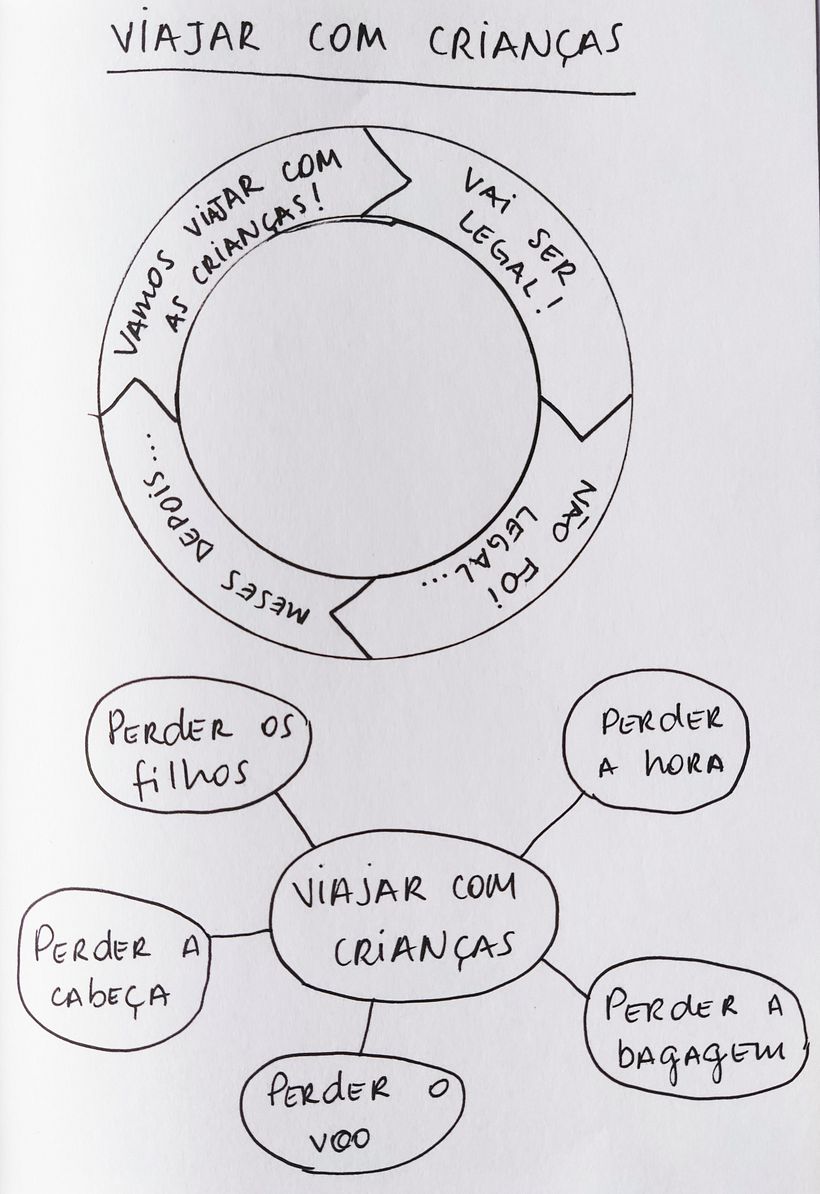 VIAJAR COM CRIANÇAS
VAMOS VIAJAR COM
AS CRIANÇAS!
VAI SER
LEGAL!
NÃO FOI
LEGAL...
MESES DEPOIS...
PERDER OS
filhos
PERDER
A HORA
VIAJAR COM
CRIANÇAS
PERDER A
CABEÇA
PERDER A
bagagem
PERDER O
VOO